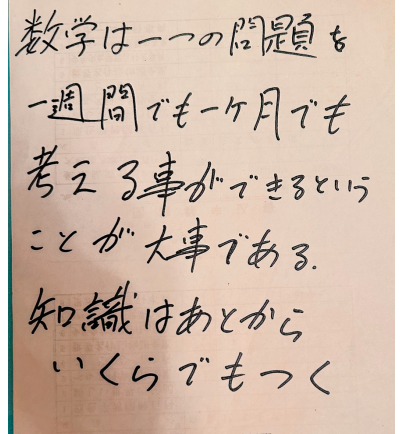 数学は一つの問題を
一週間でも一ケ月でも
考える事ができるという
ことが大事である.
知識はあとから
いくらでもつく